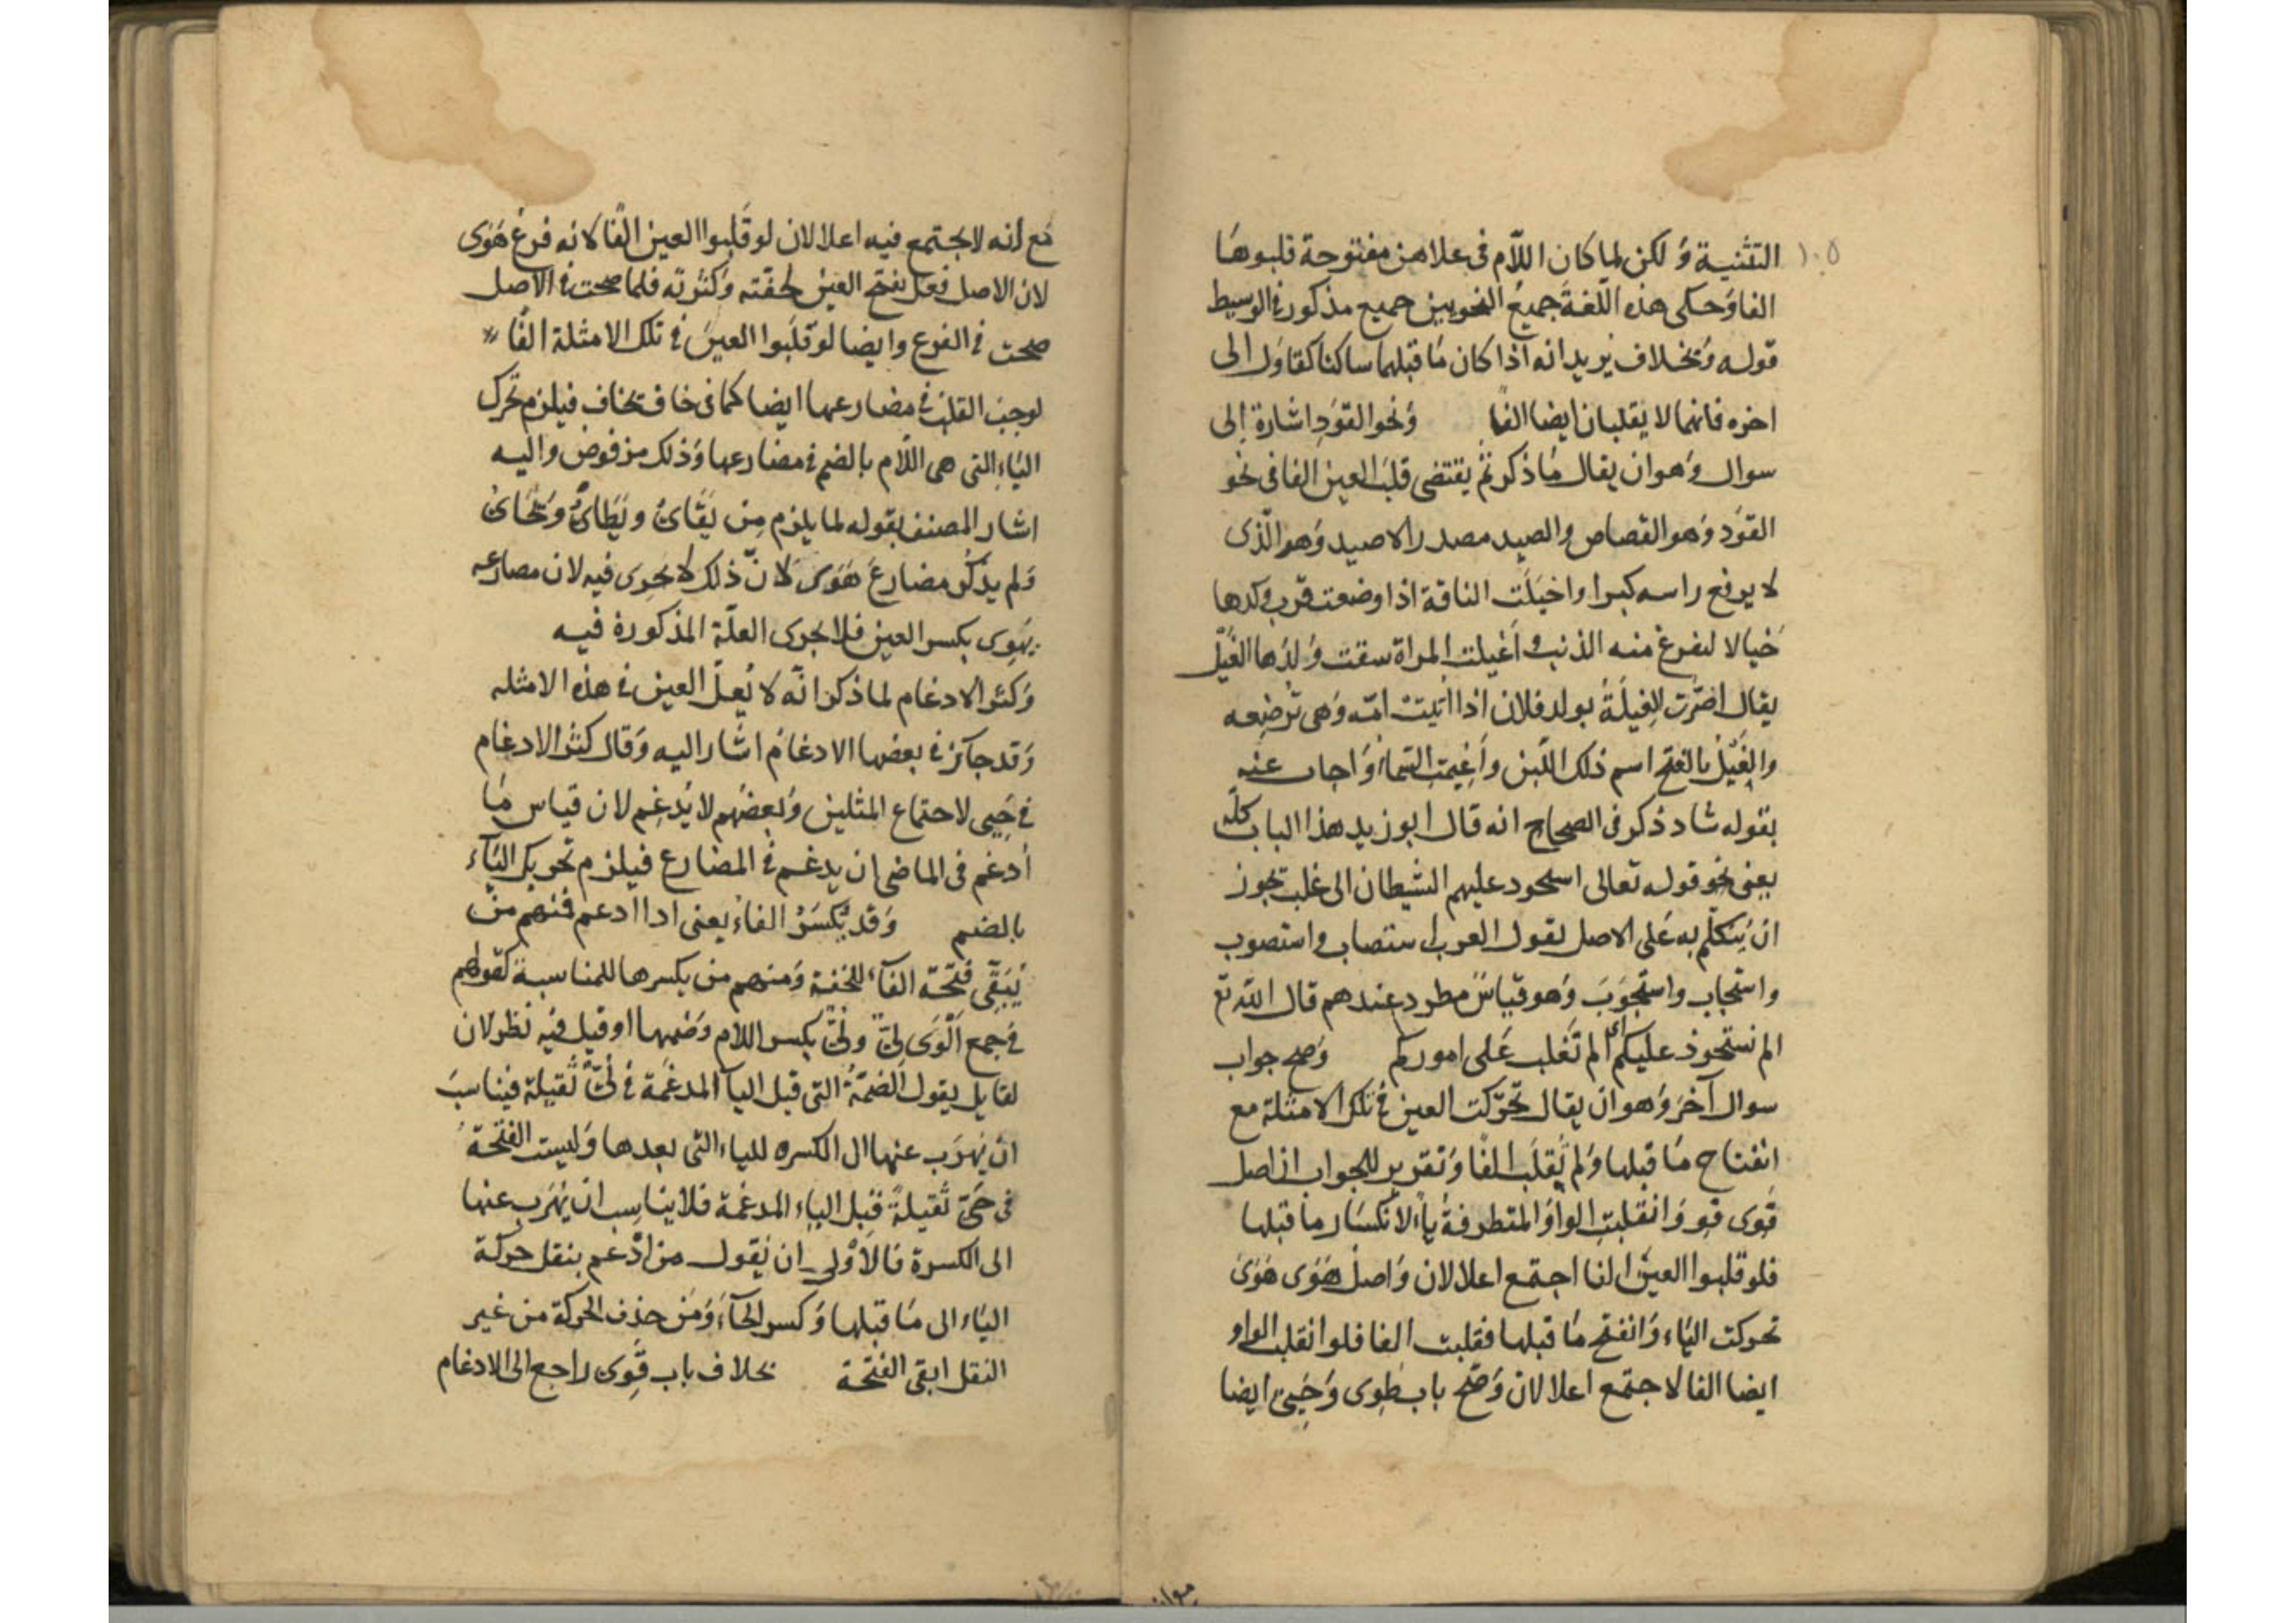 ١٠٥
التثنية وَلكن لما كان اللّام في علاهن مفتوحة قلبوها
الفا وَحكى هذه اللّغةَ جميعُ النحويين جميع مذكور في الوسيط
قوله وَبخلاف يريد انه اذا كان مَا قبلهما ساكنا كقاوَل الى
اخره فانهما لا يقلبان ايضا الفًا وَنحو القوَدِ اشارة إلى
سوال وَهو ان يقال مَا ذكرتم يقتضى قلبَ العين الفا فى نحو
القوَد وَهو القصاص والصيد مصدر الاصيد وَهو الّذى
لا يرفع راسه كبرا واخيَلَت الناقة اذا وضعت قرب ولدها
خَيالا ليفرغ منه الذئب واَغيلت المراة سقت وَلدَها الغَيْل
يقال اضرّت الغِيلَةُ بولد فلان اذا اتيت امّه وَهى ترضِعه
والغَيْلُ بالفتح اسم ذلك اللّبن واَغيمَت السّماءُ وَاجاب عنه
بقوله شاد ذكر فى الصحاح انه قال ابو زيد هذا الباب كلّه
يعنى نحو قوله تعالى استحود عليهم الشيطان اى غلب تجوز
ان يُتكلّم به عَلى الاصل لقول العرب استصاب واستصوب
واستجاب واستجوَبَ وَهو قياسٌ مطرد عندهم قال الله تع
الم نستحوذ عليكم اى الم تَغلب عَلى اموركم وَصح جواب
سوال آخرَ وَهو ان يقال تحرّكت العين فى تلك الامثلة مع
انفتاح مَا قبلها وَلم تُقلَب الفًا وَتقرير للجواب ان اصل
قَوِى قوِوَ انقلبتِ الواوُ المتطرفةُ ياءً لانكسَار ما قبلها
فلو قلبوا العينَ الفا اجتمع اعلالان وَاصل هَوَى هَوَىَ
تحركت اليَاء وَانفتح مَا قبلها فقلبت الفا فلو انقلب الواو
ايضا الفا لاجتمع اعلالان وَصَحّ باب طوِى وَحَيِىَ ايضا
مَع أنه لا يجتمع فيه اعلالان لو قَلَبوا العين الفًا لانه فرعُ هَوَى
لان الاصل فعَل بفتح العين لخفّته وَكثرته فلما صحت فى الاصل
صحت فى الفرع وايضا لو قلَبوا العينَ فى تلك الامثلة الفًا
لوجب القلبُ فى مضارعها ايضا كما فى خاف تخاف فيلزم تحرك
اليَاءِ التى هى اللّام بالضم فى مضارعها وَذلك مرفوض واليه
اشار المصنف بقوله لما يلزم مِن يَقَاىُ ويَطَاىُ وَيَحَاىُ
وَلم يذكُر مضارعَ هَوَى لانّ ذلك لا يجرى فيه لان مضارعه
يَهوِى بكسر العين فلا يجرى العلّة المذكورة فيه
وَكثر الادغام لما ذكر انّه لا يُعلّ العين فى هذه الامثله
وَقد جآئز فى بعضها الادغامُ اشار اليه وَقال كثر الادغام
فى حَيِىَ لاجتماع المثلين وَبعضهُم لا يُدغِم لان قياس مَا
اُدغم فى الماضى ان يدغم فى المضارع فيلزم تحريك اليَآء
بالضم وَقد يُكسَرُ الفاءُ يعنى اذا ادغم فمنهم من
يُبَقّى فَتحة الفآء للخفة وَمنهم من يكسرها للمناسبة كقولهم
فى جمع اَلْوَى لِىّ ولُىّ بكسر اللام وَضمها اوقيل فيه نظر لان
لقايل يقول الضمّةُ التى قبل اليا المدغَمة فى لُىّ ثقيلة فيناسبُ
ان يُهرَب عنها الى الكسره للياء التى بعدها وَليست الفتحةُ
فى حَىّ ثقيلةً قبل الياء المدغمة فلا يناسِب ان يُهرَب عنها
الى الكسرة فالاَوْلى ان يقول من ادّغم بنقل حركة
اليَاء الى مَا قبلها وَكسر الحَآءَ وَمَن حذف الحركة من غير
النقل ابقى الفتحة بخلاف باب قَوِى راجع الى الادغام